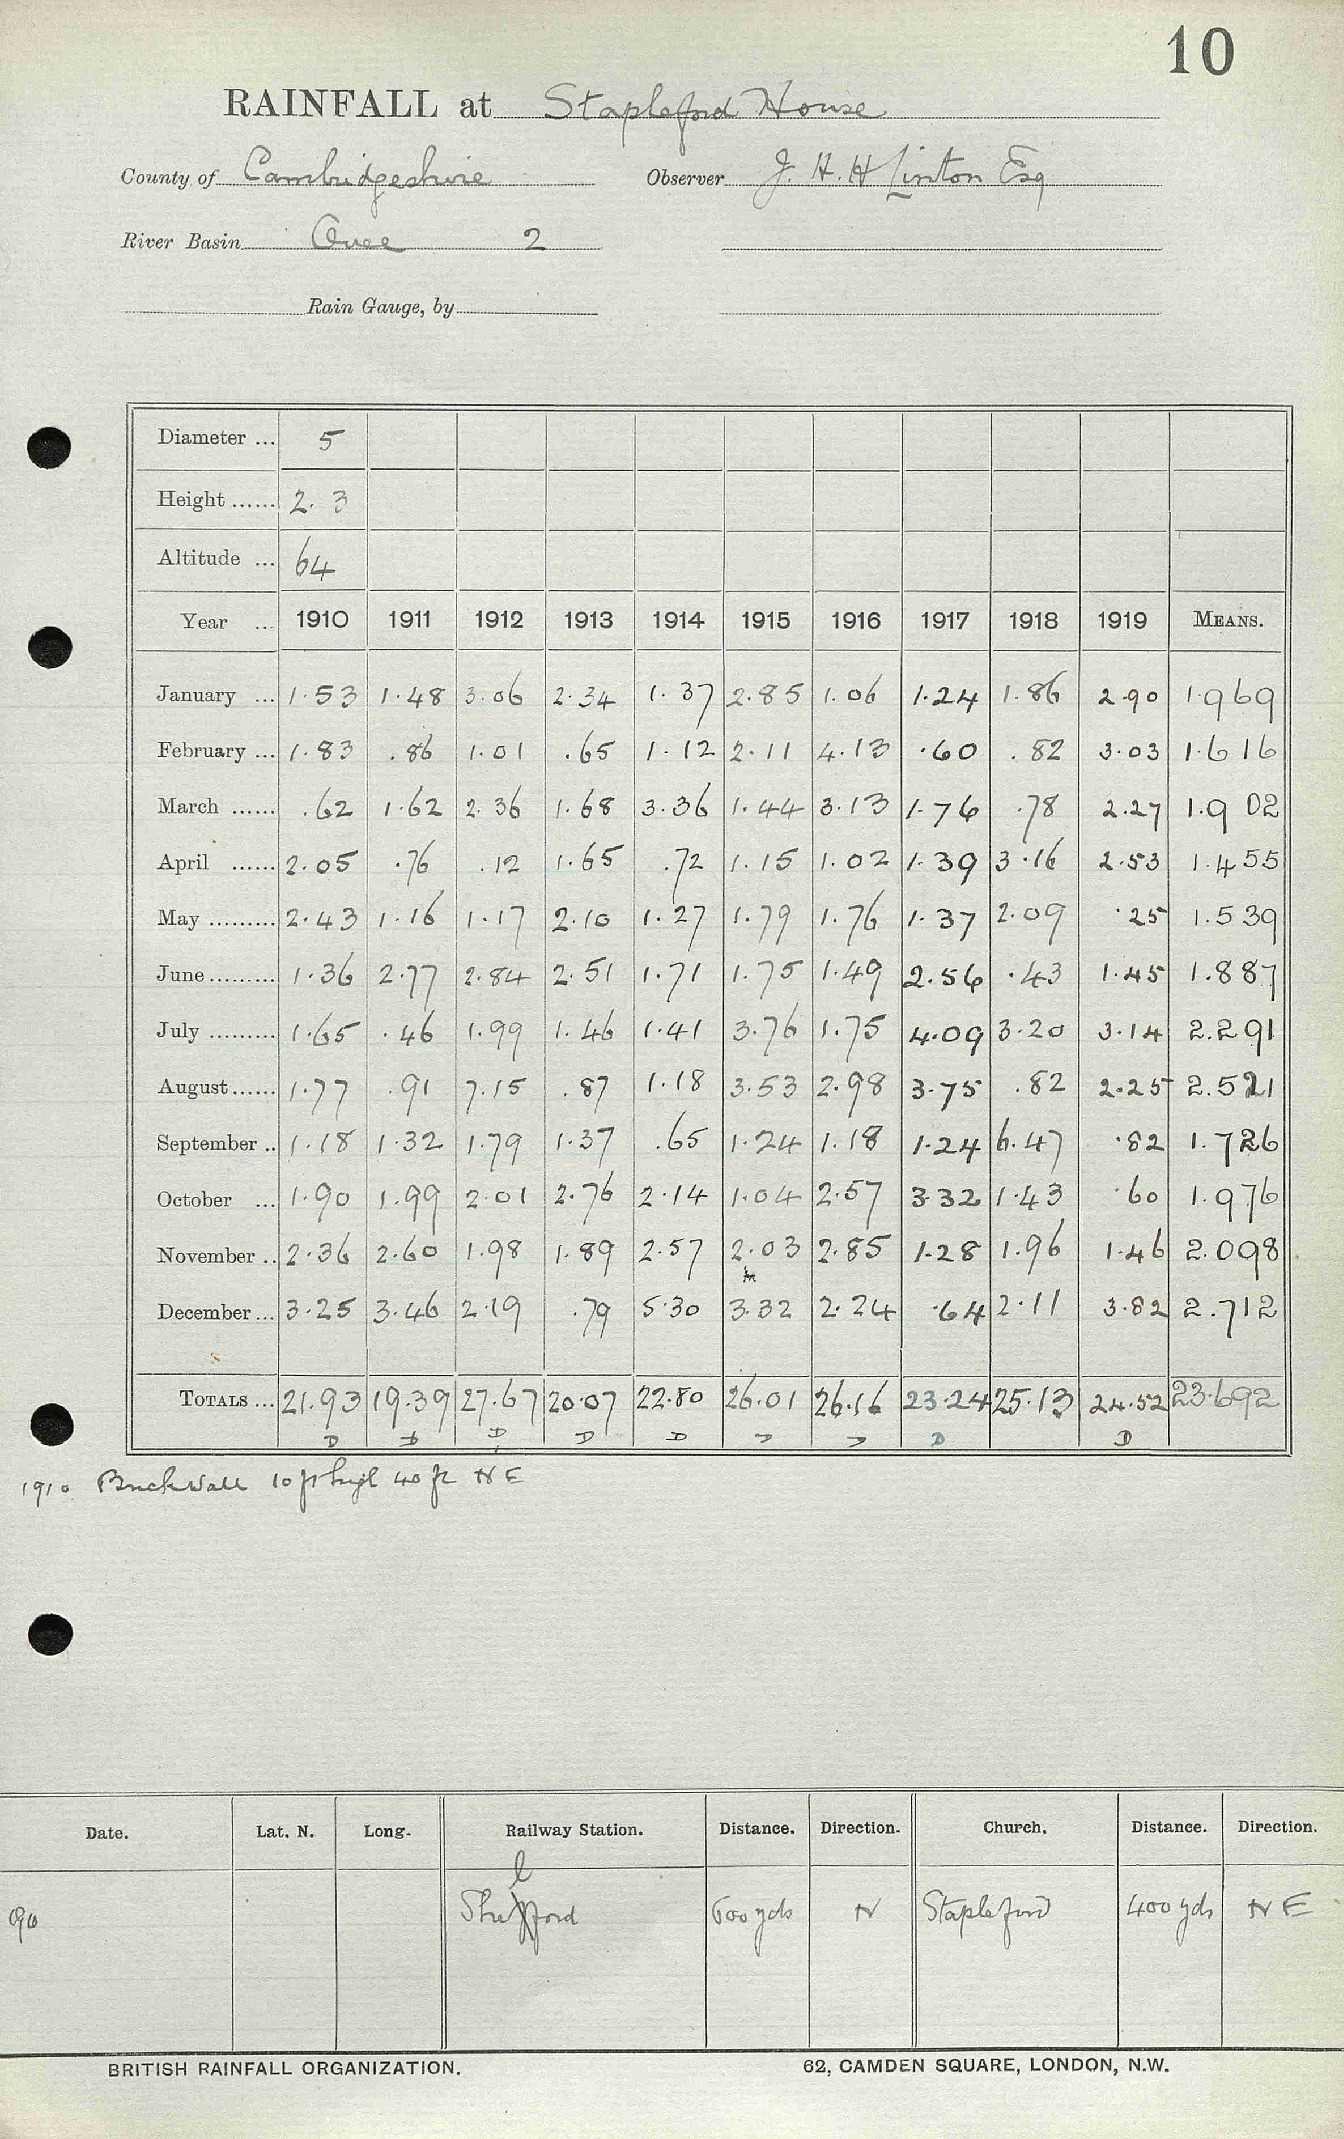 10
RAINFALL at Stapleford House
County of Cambridgeshire Observer J. H. H Linton Esq
River Basin Ouse 2
Rain Gauge, by
Diameter ... 5
Height ...... 2. 3
Altitude ... 64
Year ... 1910 1911 1912 1913 1914 1915 1916 1917 1918 1919 MEANS.
January ... 1.53 1.48 3.06 2.34 1.37 2.85 1.06 1.24 1.86 2.90 1.969
February ... 1.83 .86 1.01 .65 1.12 2.11 4.13 .60 .82 3.03 1.616
March ...... .62 1.62 2.36 1.68 3.36 1.44 3.13 1.76 .78 2.27 1.902
April ...... 2.05 .76 .12 1.65 .72 1.15 1.02 1.39 3.16 2.53 1.455
May ......... 2.43 1.16 1.17 2.10 1.27 1.79 1.76 1.37 2.09 .25 1.539
June ......... 1.36 2.77 2.84 2.51 1.71 1.75 1.49 2.56 .43 1.45 1.887
July ......... 1.65 .46 1.99 1.46 1.41 3.76 1.75 4.09 3.20 3.14 2.291
August ...... 1.77 .91 7.15 .87 1.18 3.53 2.98 3.75 .82 2.25 2.521
September .. 1.18 1.32 1.79 1.37 .65 1.24 1.18 1.24 6.47 .82 1.726
October ... 1.90 1.99 2.01 2.76 2.14 1.04 2.57 3.32 1.43 .60 1.976
November .. 2.36 2.60 1.98 1.89 2.57 2.03 2.85 1.28 1.96 1.46 2.098
December ... 3.25 3.46 2.19 .79 5.30 3.32 2.24 .64 2.11 3.82 2.712
TOTALS ... 21.93 19.39 27.67 20.07 22.80 26.01 26.16 23.24 25.13 24.52 23.692
D D D D D D D D D
1910 Brick wall 10 ft high 40 ft N E
Date. Lat. N. Long. Railway Station. Distance. Direction. Church. Distance. Direction.
Shelford 600 yds N Stapleford 400 yds N E
BRITISH RAINFALL ORGANIZATION. 62, CAMDEN SQUARE, LONDON, N.W.